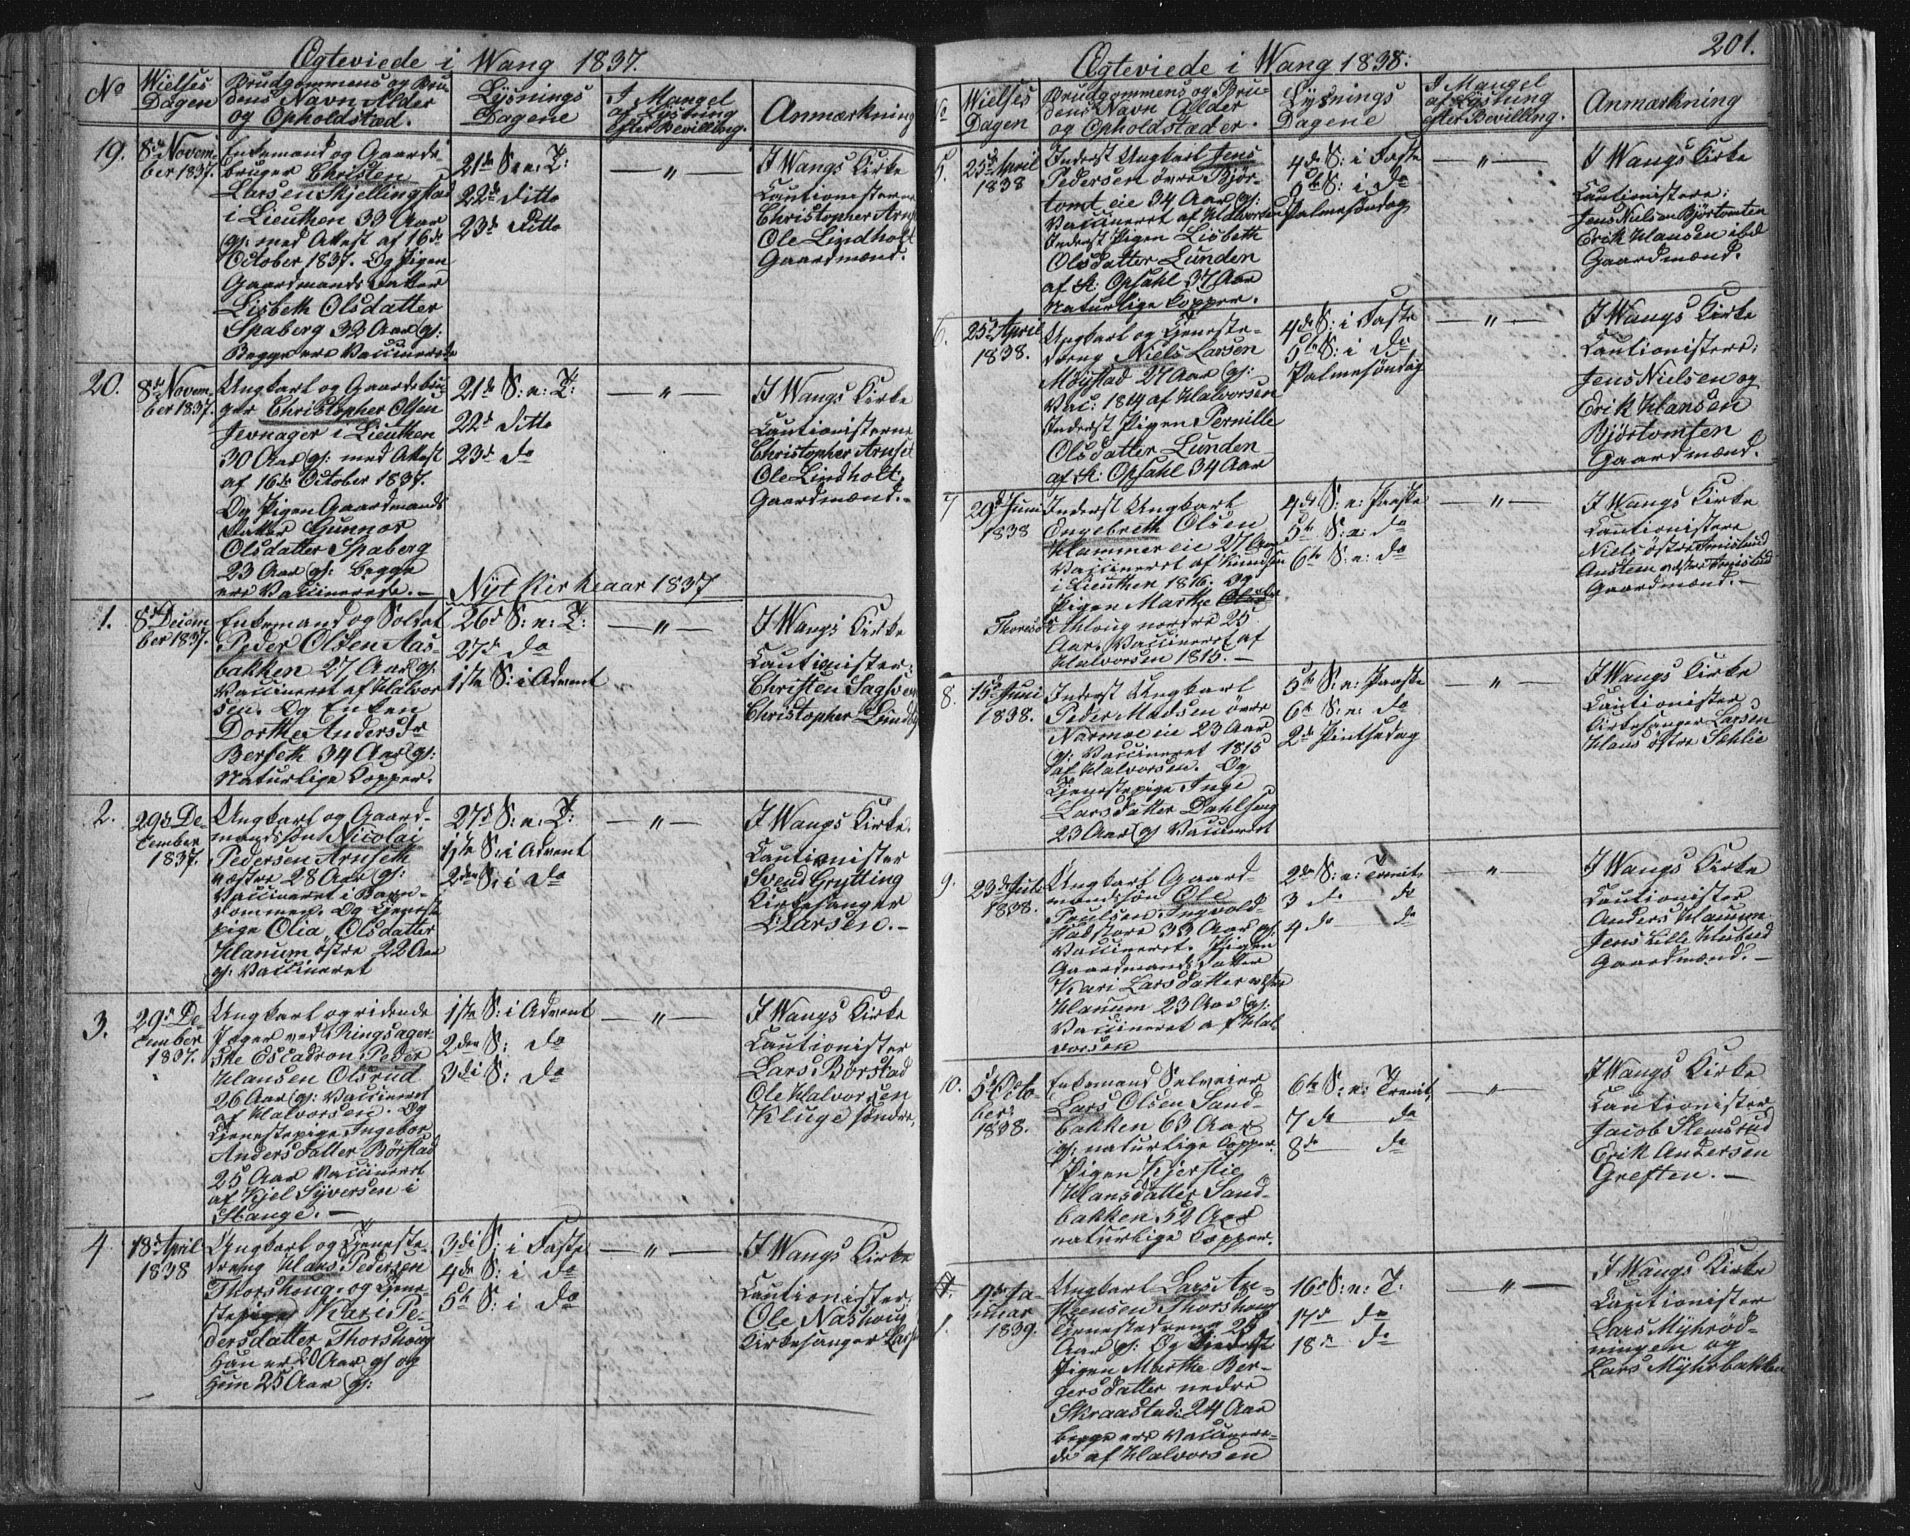 Ægteviede i Wang 1837.
No
Wielses Dagen
Brudgommens og Bru-
dens Navn Alder
og Opholdstæd.
Lysnings
Dagene
I Mangel
af Lysning
efter Bevilling.
Anmærkning
19.
8de Novem-
ber 1837.
Enkemand og Gaard-
bruger Christen
Larsen Skjellingstad
i Lieuthen 33 Aar
gl: med Attest af 16de
October 1837. Og Pigen
Gaardmands Datter
Lisbeth Olsdatter
Spaberg 32 Aar gl:
Begge ere Vaccinerede
21de S. e. T:
22de Ditto
23de Ditto
— " —
I Wangs Kirke
Cautionisterne
Christopher Arnset
Ole Lindholt
Gaardmænd.
20.
8de Novem-
ber 1837.
Ungkarl og Gaardbru-
ger Christopher Olsen
Jevnager i Lieuthen
30 Aar gl: med Attest
af 16de October 1837.
Og Pigen Gaardmands
Datter Gunnor
Olsdatter Spaberg
23 Aar gl: begge
ere Vaccinerede. —
21de S: e: T:
22de Ditto
23de do
— " —
I Wangs Kirke
Cautionisterne
Christopher Arnset
Ole Lindholt,
Gaardmænd. -
Nyt Kirkeaar 1837
1.
8de Decem
ber 1837.
Enkemand og Soldat
Peder Olsen Aas-
bakken 27 Aar gl:
Vaccineret af Halvor
sen. Og Enken
Dorthe Andersdr
Berseth 34 Aar gl:
Naturlige Copper.
26d S: e: T:
27d do
1ste S: i Advent
— " —
I Wangs Kirke
Cautionister:
Christen Sagsveen
Christopher Lund
2.
29de De-
cember
1837.
Ungkarl og Gaard-
mandssøn Nicolai
Pedersen Arnseth
væstre 28 Aar gl:
Vaccineret i Barn-
dommen. Og Tjeneste
pige Olia Olsdatter
Hanum östre 22 Aar
gl: Vaccineret
27d S: e: T:
1ste S: i Advent
2den S: i do
— " —
I Wangs Kirke.
Cautionister
Svend Grytting
Kirkesanger
Larsen. -
3.
29de De-
cember
1837.
Ungkarl og ridende
Jæger ved Ringsager-
ske Escadron Peder
Hansen Olsrud
26 Aar gl: Vaccineret
af Halvorsen. Og
Tjenestepige Ingebor
Andersdatter Börstad
25 Aar Vaccineret
af Kjel Syversen i
Stange. —
1ste S: i Advent
2den S: do
3di S: do
— " —
I Wangs Kirke
Cautionister
Lars Börstad
Ole Halvorsen
Kluge söndre,
4.
18de April
1838
Ungkarl og Tjeneste-
dreng Hans Pedersen
Thorshoug, og Tjene-
stepige Kari Pe-
dersdatter Thorshoug
Han er 20 Aar gl og
Hun 25 Aar gl:
3di S: i Faste
4de S: i do
5te S: i do
— " —
I Wangs Kirke
Cautionister
Ole Nashoug
Kirkesanger Lars
201.
Ægteviede i Wang 1838:
No
Wielses
Dagen
Brudgommens og Bru-
dens Navn Alder
og Opholdstæder.
Lysnings
Dagene
I Mangel
af Lysning
efter Bevilling.
Anmærkning
5.
25de April
1838
Inderst Ungkarl Jens
Pedersen övre Björ-
tomt eie 34 Aar gl:
Vaccineret af Halvorsen
Inderst Pigen Lisbeth
Olsdatter Lunden
af A: Opsahl 37 Aar
Naturlige Copper.
4de S: i Faste
5te S: i do
Palmesöndag
— " —
I Wangs Kirke
Cautionistere:
Jens Nielsen Björtomten
Erik Hansen ibd
Gaardmænd.
6.
25de April
1838.
Ungkarl og Tjeneste-
dreng Niels Larsen
Möystad 27 Aar gl:
Vac: 1814 af Halvorsen
Inderst Pigen Pernille
Olsdatter Lunden
af A: Opsahl 34 Aar
4de S: i Faste
5te S: i do
Palmesöndag
— " —
I Wangs Kirke
Cautionistere:
Jens Nielsen og
Erik Hansen
Björtomten
Gaardmænd.
7
29de Juni
1838
Inderst Ungkarl
Engebreth Olsen
Hammer eie 27 Aar
Vaccineret af Knudsen
i Lieuthen 1816. Og
Pigen Marthe
Kloug nordre 25
Aar. Vaccineret af
Halvorsen 1815. —
4de S: e: Paaske
5te S: e: do
6te S: e: do
— " —
I Wangs Kirke
Cautionistere
Niels östre Imistad
Austen væstre Imistad
Gaardmænd. -
8.
15de Juni
1838.
Inderst Ungkarl
Peder Madsen övre
Narmoe eie 23 Aar
gl: Vaccineret 1815
af Halvorsen. Og
Tjenestepige Inge
Larsdatter Dahlseng
23 Aar gl Vaccineret
5te S: e: Paaske
6te S: e: do
2de Pintsedag
— " —
I Wangs Kirke
Cautionister
Kirkesanger Larsen
Hans östre Sæhlie
9.
23de Juli
1838.
Ungkarl Gaard-
mandssøn Ole
Poulsen Ingvold-
stad store 33 Aar gl:
Vaccineret. Pigen
Gaardmands Datter
Kari Larsdatter östre
Hanum 23 Aar gl:
Vaccineret af Hal
vorsen
2de S: e: Trenit:
3 de do
4 de do
— " —
I Wangs Kirke
Cautionister
Anders Hanum
Jens Lille Hubred
Gaardmænd. —
10.
5te Octo-
ber
1838.
Enkemand Selveier
Lars Olsen Sand-
bakken 63 Aar
gl: naturlige Copper.
Pigen Kjerstie
Hansdatter Sand-
bakken 52 Aar
naturlige Copper.
6te S: e: Trenit:
7 de do
8de do
— " —
I Wangs Kirke
Cautionister
Jacob Slemsrud
Erik Andersen
Greften. —
1.
9de Ja-
nuar
1839.
Ungkarl Lars An-
Thorshoug
Tjenestedreng 25
Aar gl: Og
Pigen Marthe Ber-
gersdatter nedre
Skraastad: 24 Aar
begge ere Vaccinere-
de af Halvorsen
16d S: e: T:
17d do
18de do
— " —
I Wangs Kirke
Cautionister
Lars Myhröd-
ningen og
Lars Myhrbakken